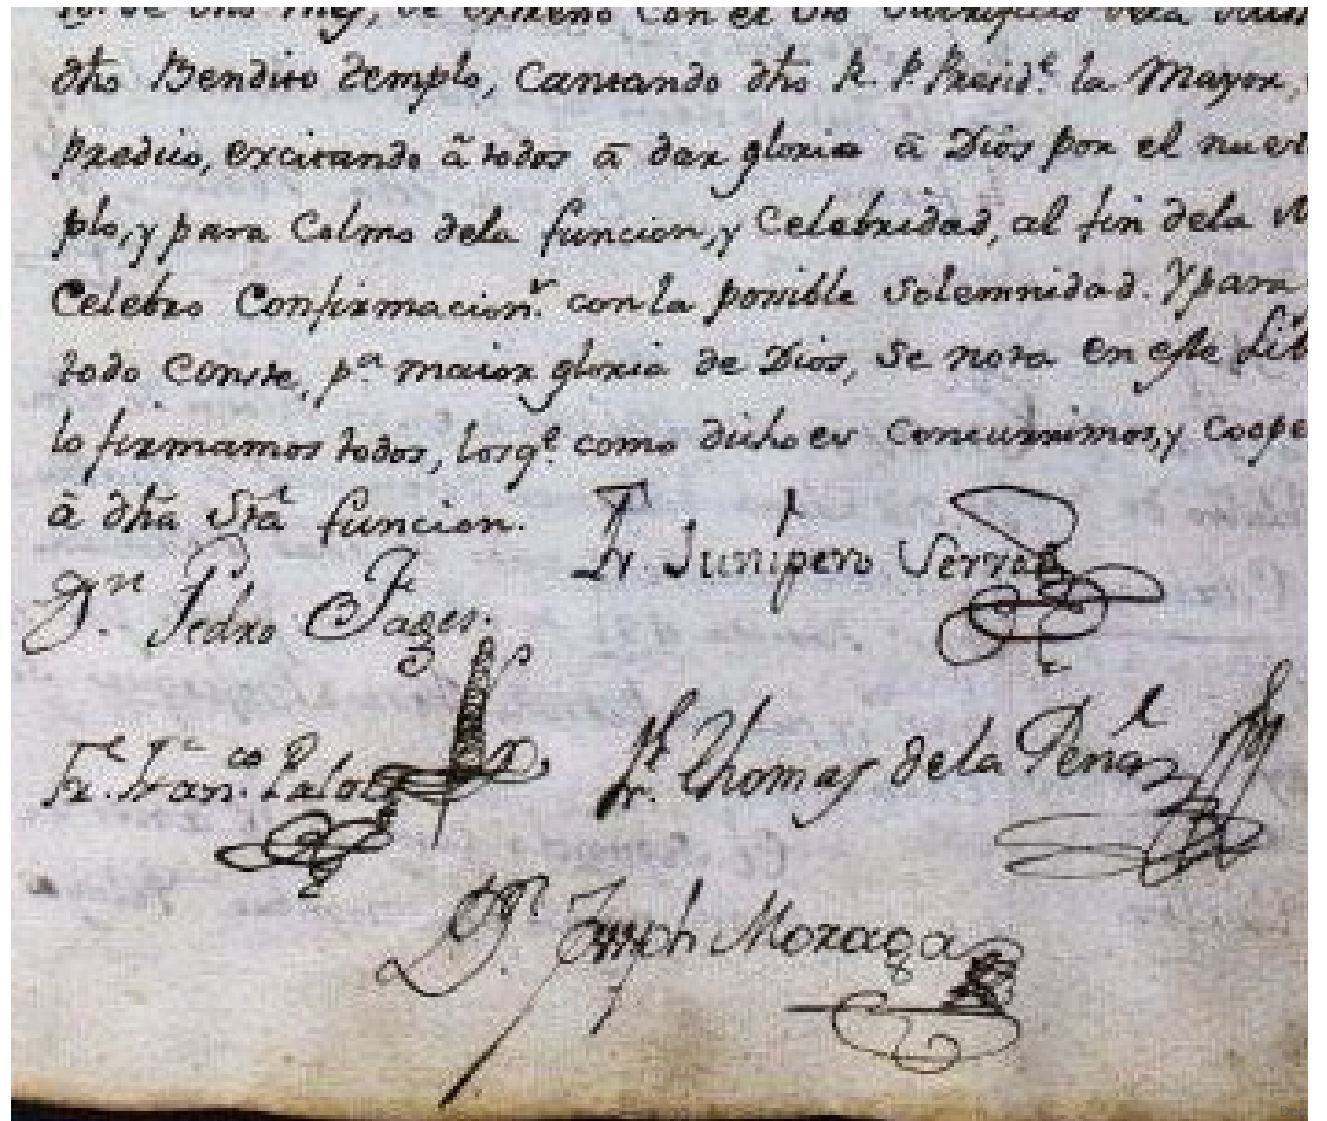 dho Bendito templo, Cantando dho R. P. Presid.e la Mayor,
predico, excitando â todos â dar gloria â Diôs por el nuev
plo, y para Colmo dela funcion, y Celebridad, al fin dela
Celebro Confirmacion.s con la posible solemnidad. Y para
todo Conste, p.a maior gloria de Dios, se nota en este Lib
lo firmamos todos, los q.e como dicho es Concurrimos, y Coope
â dhâ Stâ funcion.
Fr. Junipero Serra
D.n Pedro Fages.
Fr. Fran.co Palou
Fr. Thomas dela Peña
D.n Joseph Moraga